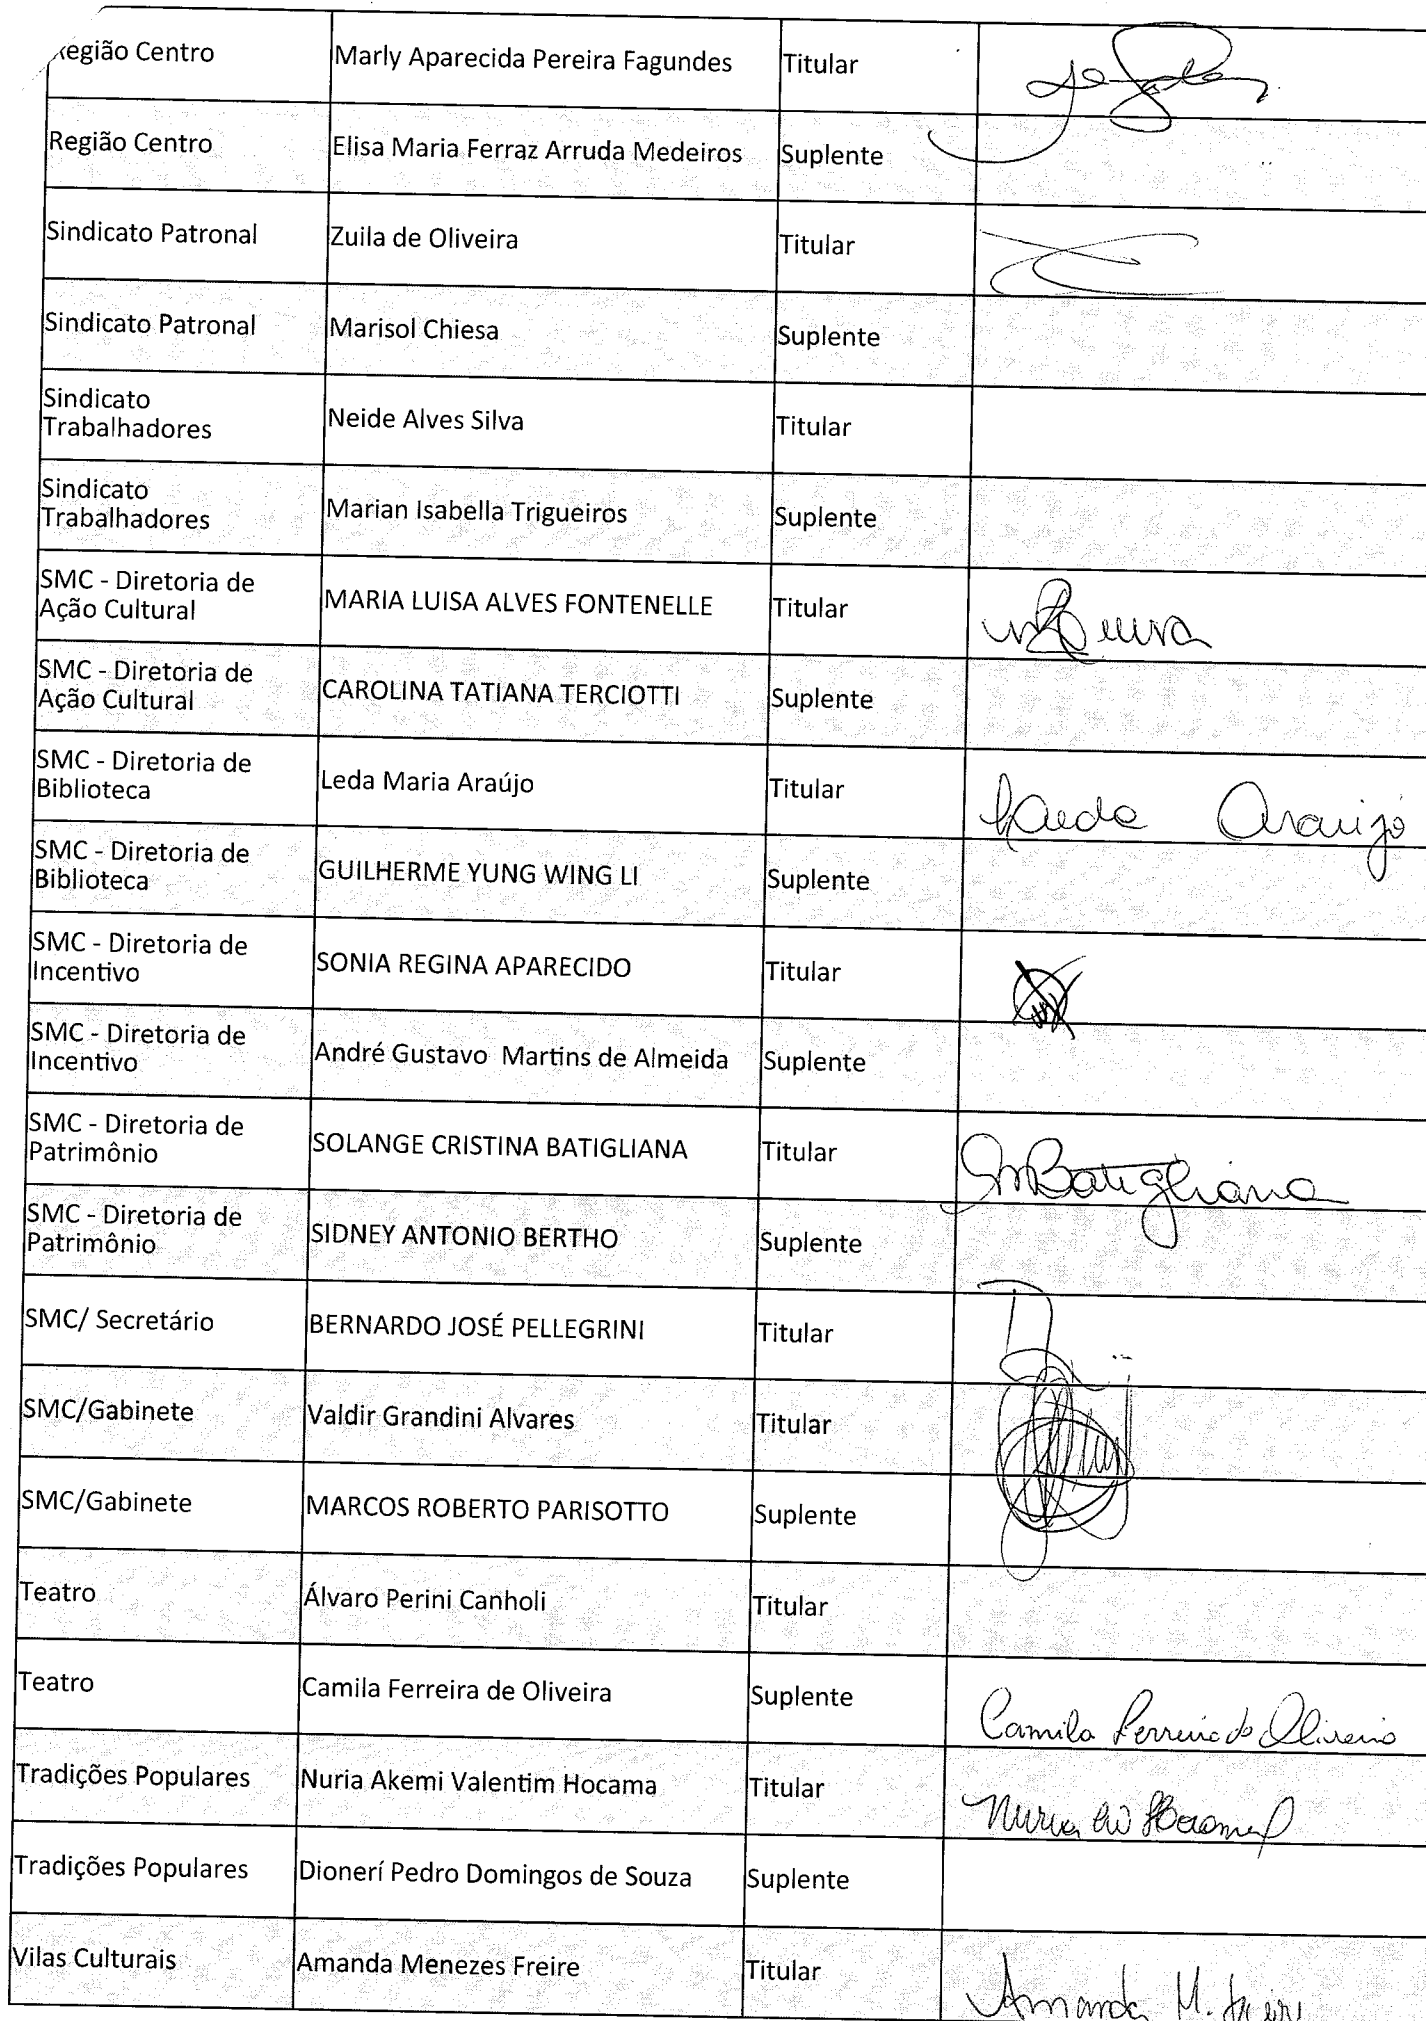 Região Centro Marly Aparecida Pereira Fagundes Titular
Região Centro Elisa Maria Ferraz Arruda Medeiros Suplente
Sindicato Patronal Zuila de Oliveira Titular
Sindicato Patronal Marisol Chiesa Suplente
Sindicato
Trabalhadores Neide Alves Silva Titular
Sindicato
Trabalhadores Marian Isabella Trigueiros Suplente
SMC - Diretoria de
Ação Cultural MARIA LUISA ALVES FONTENELLE Titular
SMC - Diretoria de
Ação Cultural CAROLINA TATIANA TERCIOTTI Suplente
SMC - Diretoria de
Biblioteca Leda Maria Araújo Titular Araujo
SMC - Diretoria de
Biblioteca GUILHERME YUNG WING LI Suplente
SMC - Diretoria de
Incentivo SONIA REGINA APARECIDO Titular
SMC - Diretoria de
Incentivo André Gustavo Martins de Almeida Suplente
SMC - Diretoria de
Patrimônio SOLANGE CRISTINA BATIGLIANA Titular Batigliana
SMC - Diretoria de
Patrimônio SIDNEY ANTONIO BERTHO Suplente
SMC/ Secretário BERNARDO JOSÉ PELLEGRINI Titular
SMC/Gabinete Valdir Grandini Alvares Titular
SMC/Gabinete MARCOS ROBERTO PARISOTTO Suplente
Teatro Álvaro Perini Canholi Titular
Teatro Camila Ferreira de Oliveira Suplente Camila Ferreira de Oliveira
Tradições Populares Nuria Akemi Valentim Hocama Titular Nuria
Tradições Populares Dionerí Pedro Domingos de Souza Suplente
Vilas Culturais Amanda Menezes Freire Titular Amanda M. Freire